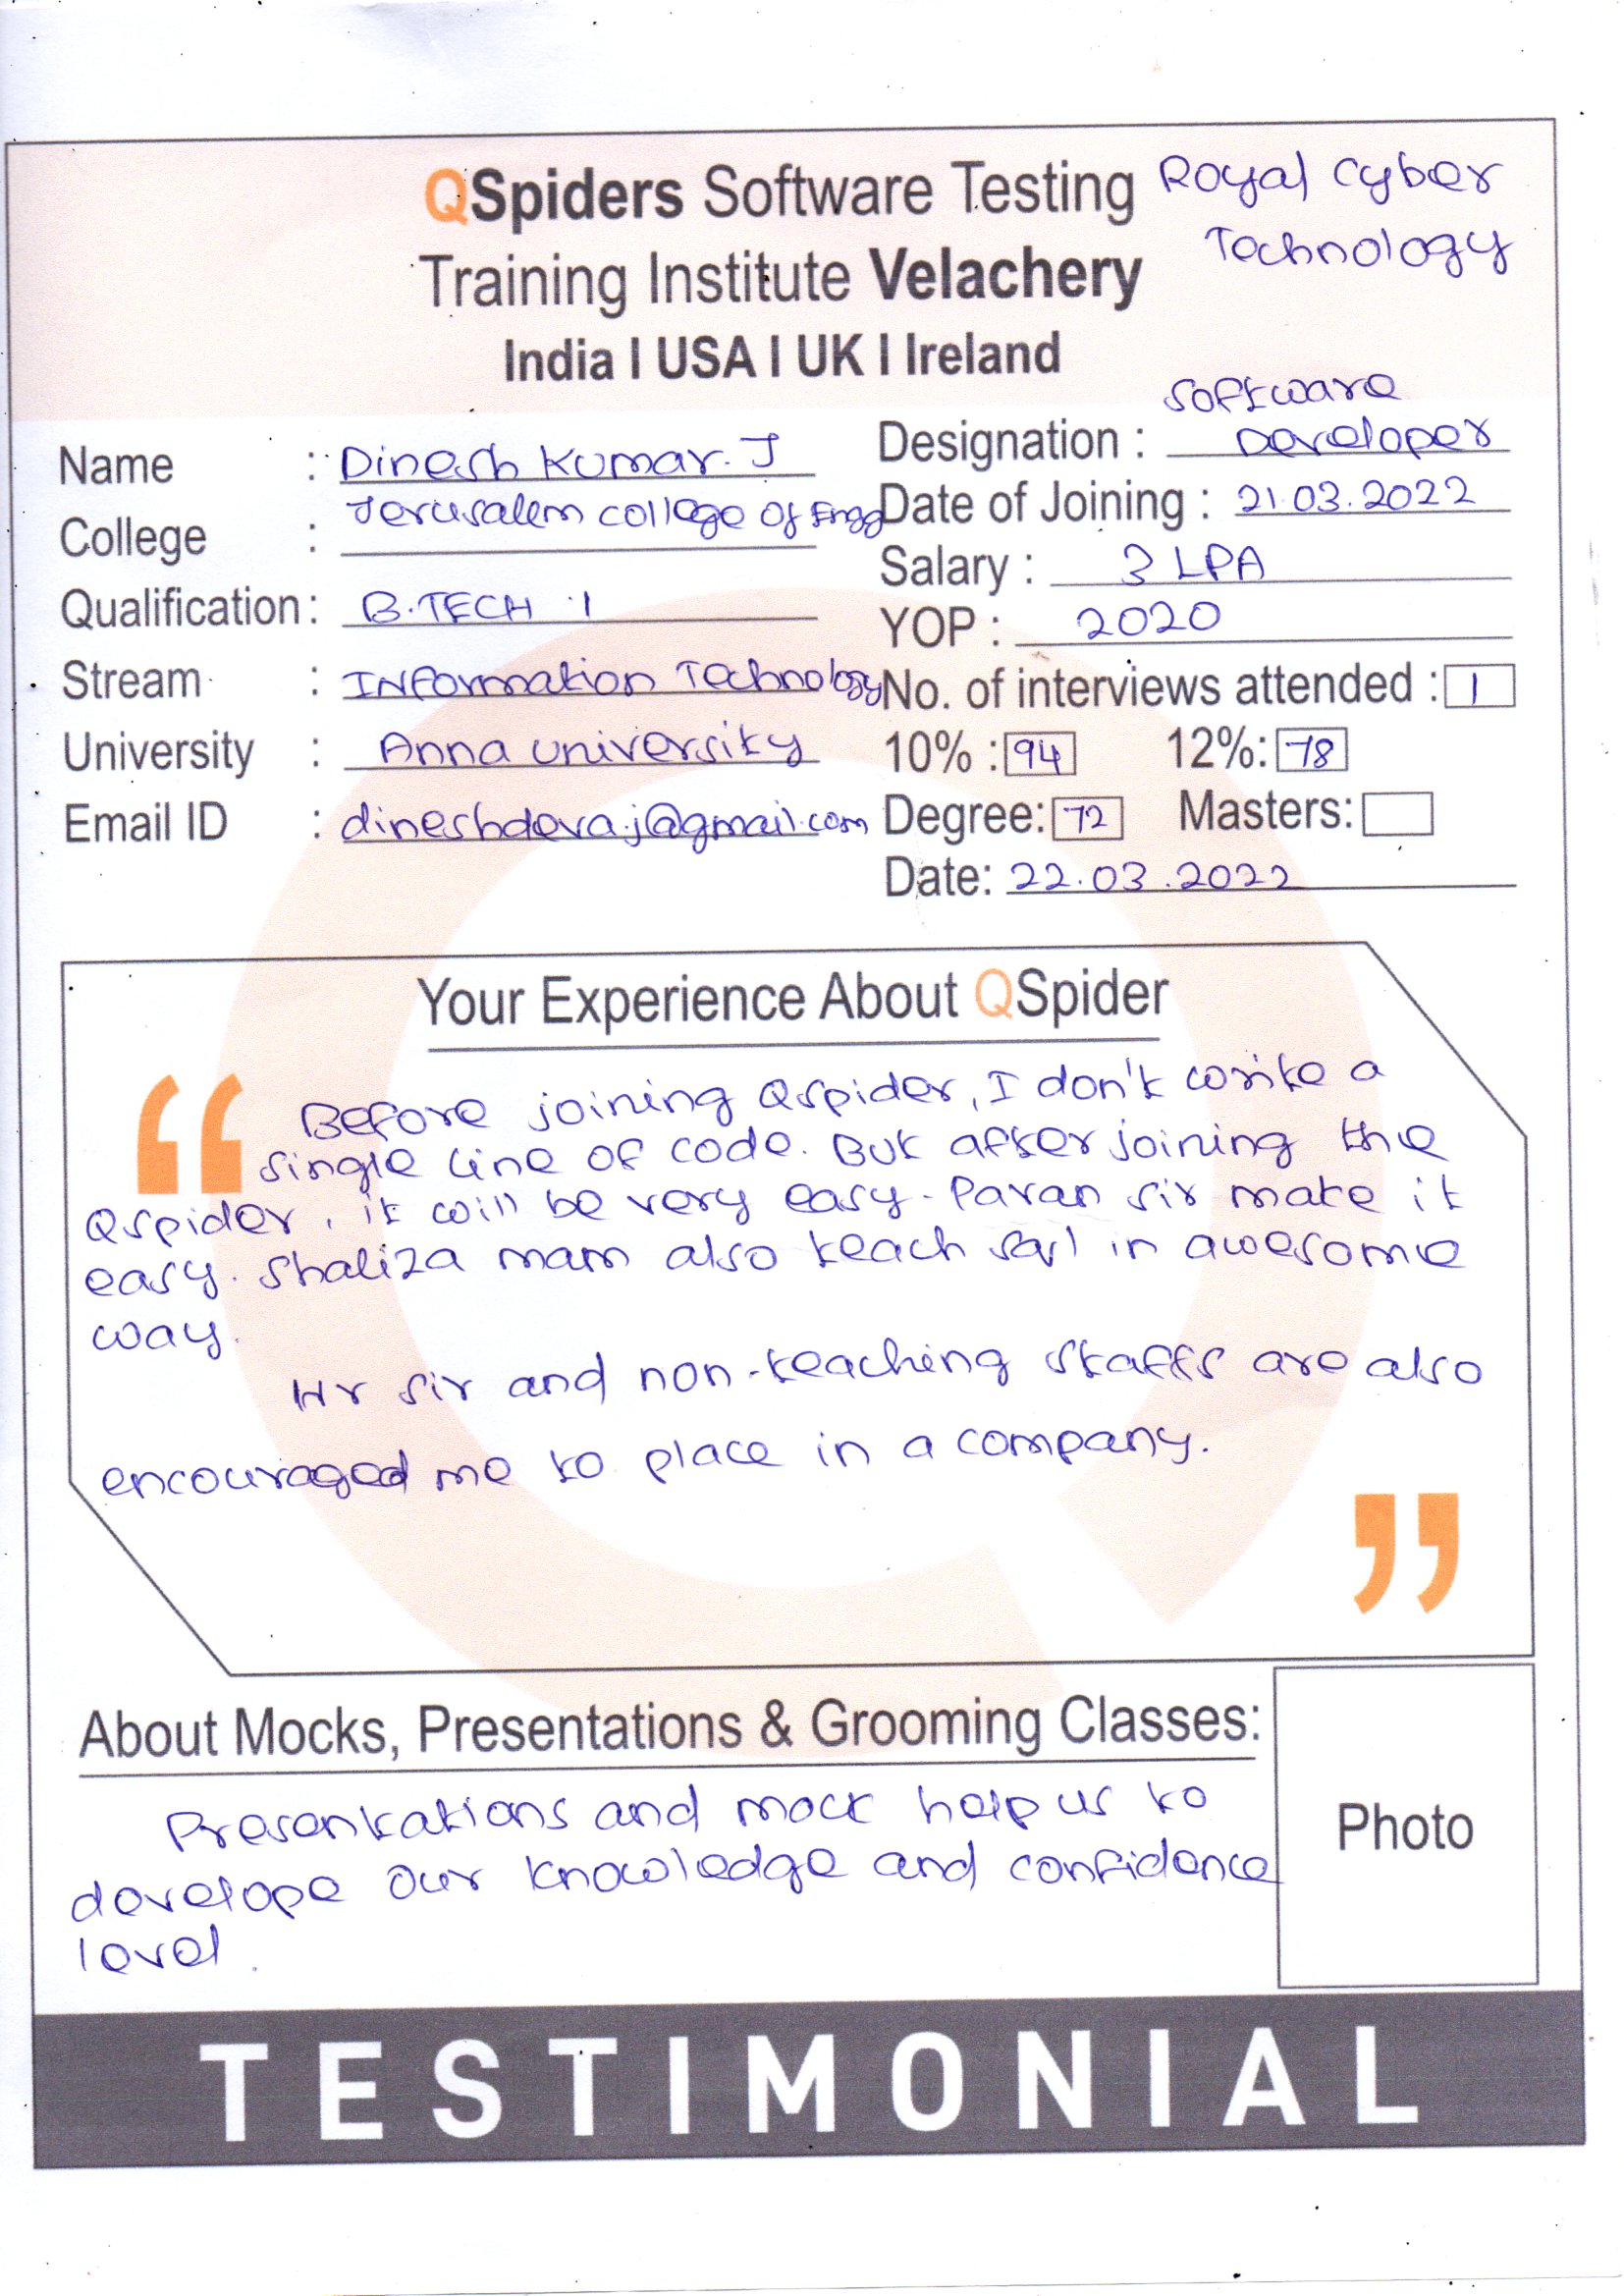 QSpiders Software Testing Royal Cyber
Training Institute Velachery Technology
India I USA I UK I Ireland
Name : Dinesh Kumar. J
College : Jerusalem college of Engg
Qualification : B.TECH
Stream : INformation Technology
University : Anna university
Email ID : dineshdeva.j@gmail.com
Designation : Software
Developer
Date of Joining : 21.03.2022
Salary : 3 LPA
YOP : 2020
No. of interviews attended : 1
10% : 94 12%: 78
Degree: 72 Masters:
Date: 22.03.2022
Your Experience About QSpider
“
Before joining Qspider, I don't write a
single line of code. But after joining the
Qspider, it will be very easy. Pavan sir make it
easy. Shaliza mam also teach Sql in awesome
way.
Hr sir and non-teaching staffs are also
encouraged me to place in a company.
”
About Mocks, Presentations & Grooming Classes:
Presentations and mock help us to
develope our knowledge and confidence
level.
Photo
TESTIMONIAL